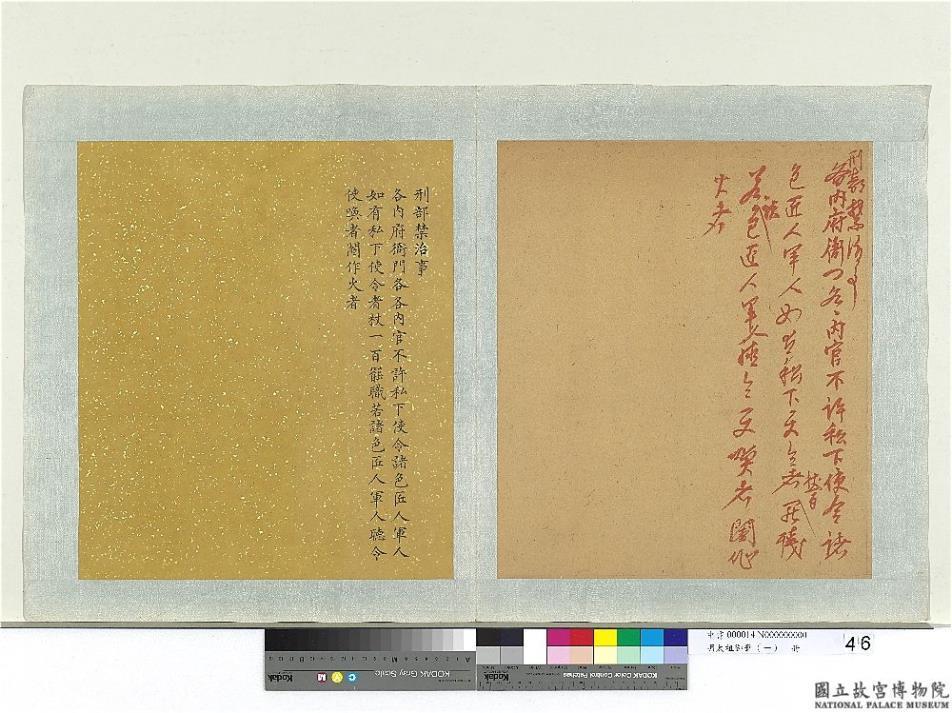 刑部禁治事
各內府衙門各各內官不許私下使令諸
色匠人軍人如有私下使令者杖一百罷職
若諸色匠人軍人聽令使喚者閹作
火者
刑部禁治事
各內府衙門各各內官不許私下使令諸色匠人軍人
如有私下使令者杖一百罷職若諸色匠人軍人聽令
使喚者閹作火者
KODAK Gray Scale
Kodak
C
Y
M
Kodak
KODAK Color Control Patches
000014 N000000000
明太祖御筆(一) 冊
46
國立故宮博物院
NATIONAL PALACE MUSEUM